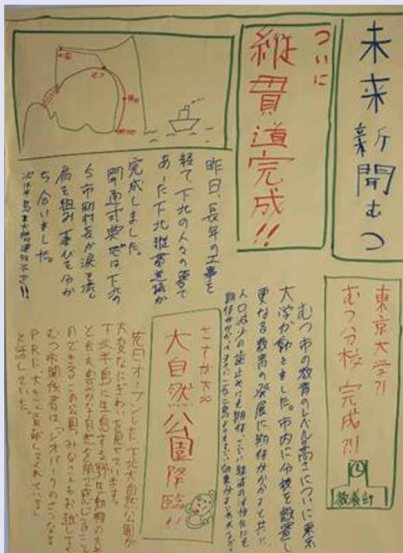 未来新聞むつ
ついに
縦貫道完成!!
昨日、長年の工事を
経て下北の人々の夢で
あった下北縦貫道路が
完成しました。
開通式典では下北の
5市町村長が涙を流し
肩を組み喜びを分か
ち合いました。
東京大学?!
むつ分校完成?!!
教養部
むつ市の教育のレベルの高さについに東京
大学が動きました。市内に分校を設置し
更なる教育の発展に期待がかかると共に
人口減少の歯止めにも期待
さすが下北
大自然公園降臨!!
先日オープンした下北大自然公園が
大変なにぎわいを見せています。
下北半島に生息する野生動物の
と共に豊かな自然を肌で感じること
のできるこの公園、みなさんもお越し下さい
むつ市関係者は「ジオパークのさらなる
PRに大きく貢献してくれている」
と話していた。